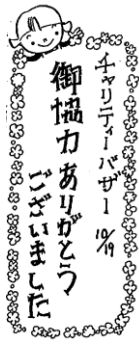 チャリティーバザー 10/19
御協力ありがとう
ございました